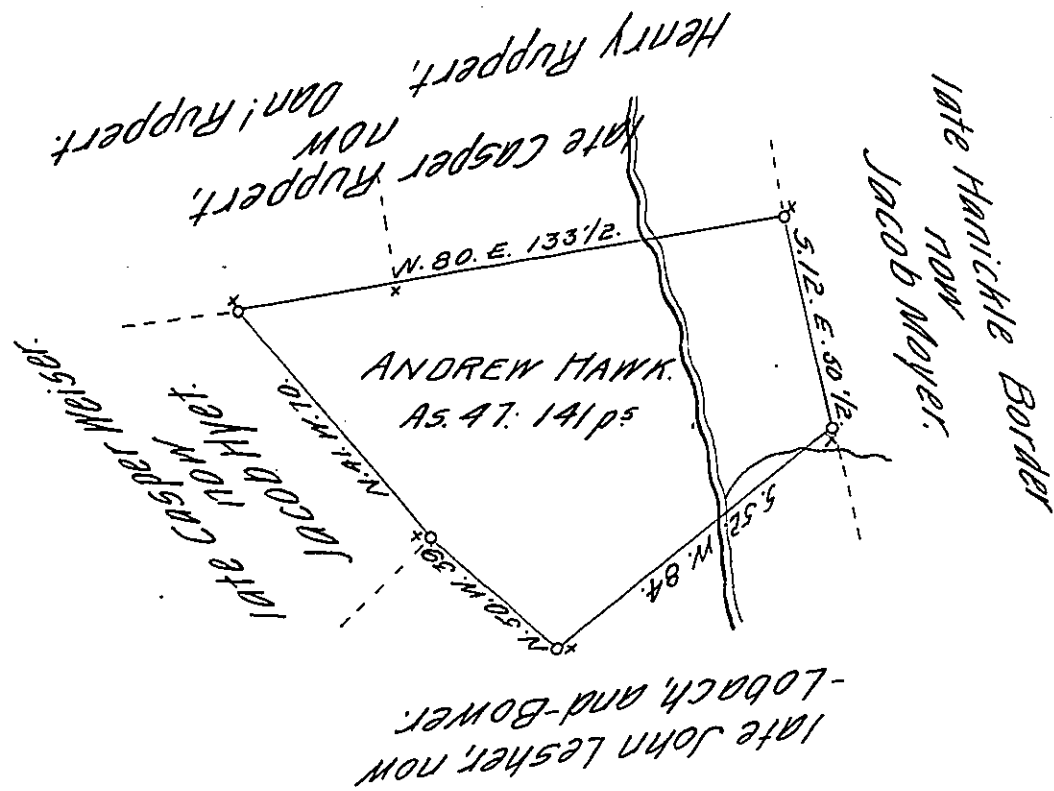 Henry Ruppert,
now Dan! Ruppert.
late Casper Ruppert,
late Hanickle Border
now
Jacob Moyer.
N. 80. E. 133 1/2.
S. 12. E. 50 1/2.
ANDREW HAWK.
As. 47: 141 ps
S. 52. W. 84.
N. 50. W. 39
N. 41. W. 70.
late Casper Weiser.
now
Jacob
late John Lesher, now
-Lobach, and -Bower.